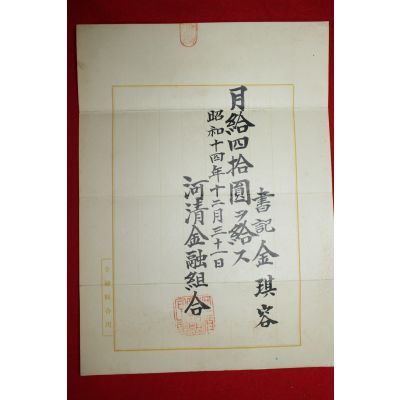 書記 金琪容
月給四拾圓ヲ給ス
昭和十四年十二月三十一日
河清金融組合